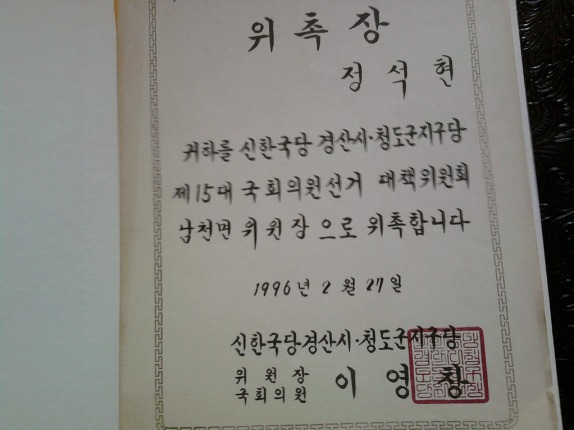 위 촉 장
정 석 현
귀하를 신한국당 경산시·청도군지구당
제15대 국회의원선거 대책위원회
남천면 위 원 장 으로 위촉합니다
1996년 2월 27일
신한국당경산시·청도군지구당
위 원 장
국회의원 이 영 창